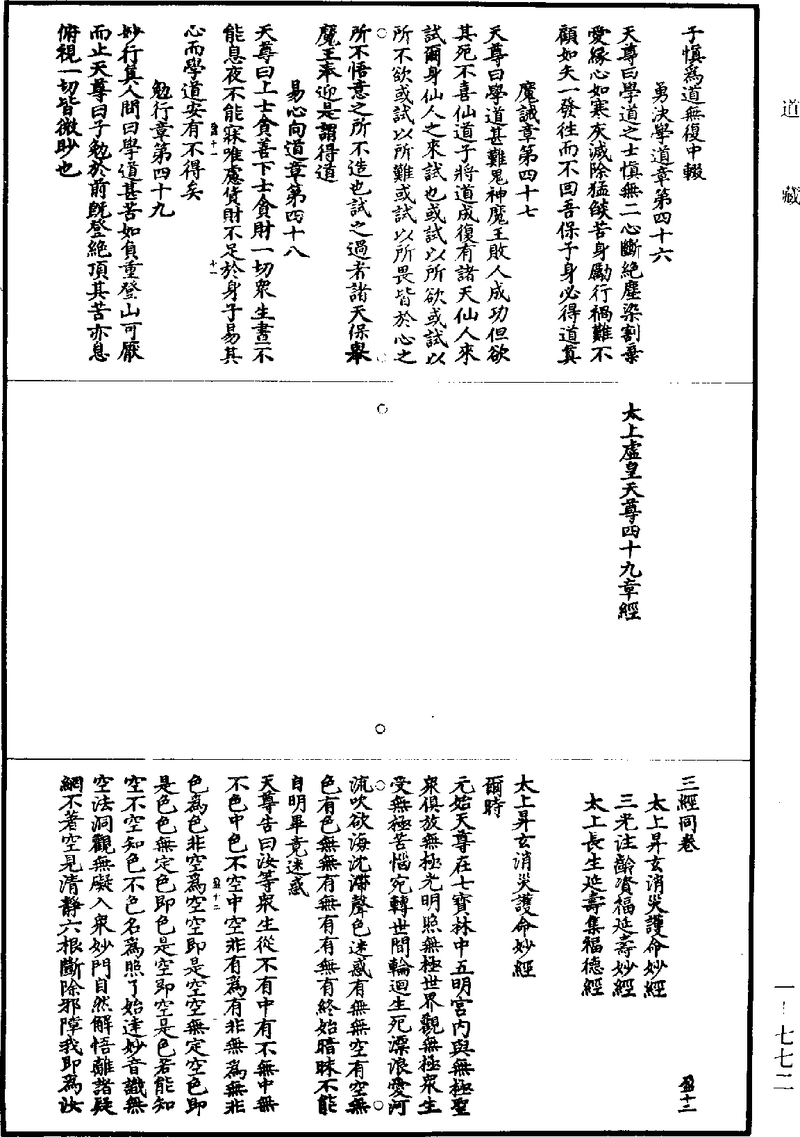 道藏
子慎為道無復中輟
勇決學道章第四十六
天尊曰學道之士慎無二心斷絶塵染割棄
愛緣心如寒灰滅除猛燄苦身勵行禍難不
顧如矢一發往而不回吾保子身必得道真
魔誡章第四十七
天尊曰學道甚難鬼神魔王敗人成功但欲
其死不喜仙道子將道成復有諸天仙人來
試爾身仙人之來試也或試以所欲或試以
所不欲或試以所難或試以所畏皆於心之
所不悟意之所不造也試之過者諸天保舉
魔王奉迎是謂得道
易心向道章第四十八
天尊曰上士貪善下士貪財一切衆生晝不
能息夜不能寐唯慮貨財不足於身子易其
盈十一
十一
心而學道安有不得矣
勉行章第四十九
妙行真人問曰學道甚苦如負重登山可厭
而止天尊曰子勉於前旣登絶頂其苦亦息
俯視一切皆微眇也
太上虛皇天尊四十九章經
三經同卷
盈十二
太上昇玄消災護命妙經
三光注齡資福延壽妙經
太上長生延壽集福德經
太上昇玄消災護命妙經
爾時
元始天尊在七寶林中五明宮內與無極聖
衆俱放無極光明照無極世界觀無極衆生
受無極苦惱宛轉世間輪迴生死漂浪愛河
流吹欲海沈滯聲色迷惑有無無空有空無
色有色無無有無有有無有終始暗昧不能
自明畢竟迷惑
天尊告曰汝等衆生從不有中有不無中無
不色中色不空中空非有為有非無為無非
盈十二
色為色非空為空空即是空空無定空色即
是色色無定色即色是空即空是色若能知
空不空知色不色名為照了始達妙音識無
空法洞觀無礙入衆妙門自然解悟離諸疑
網不著空見清靜六根斷除邪障我即為汝
一-七七二